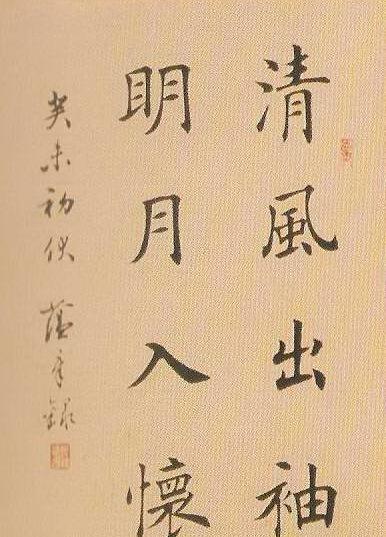 清風出袖
明月入懷
癸未初伏 蔭亭錄